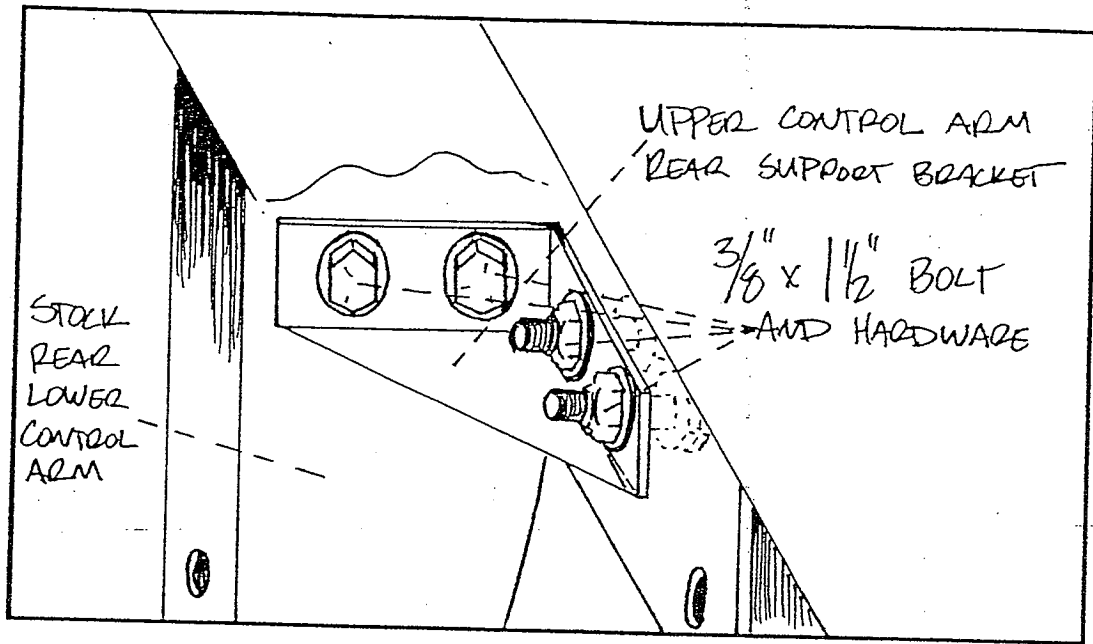 UPPER CONTROL ARM
REAR SUPPORT BRACKET
3/8" x 1 1/2" BOLT
AND HARDWARE
STOCK
REAR
LOWER
CONTROL
ARM